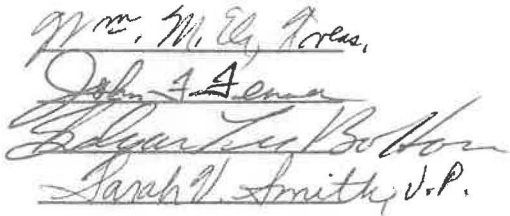 Wm. M. Ely, Treas.
John F. Fenner
Edgar Lee Bolton
Sarah V. Smith, V.P.